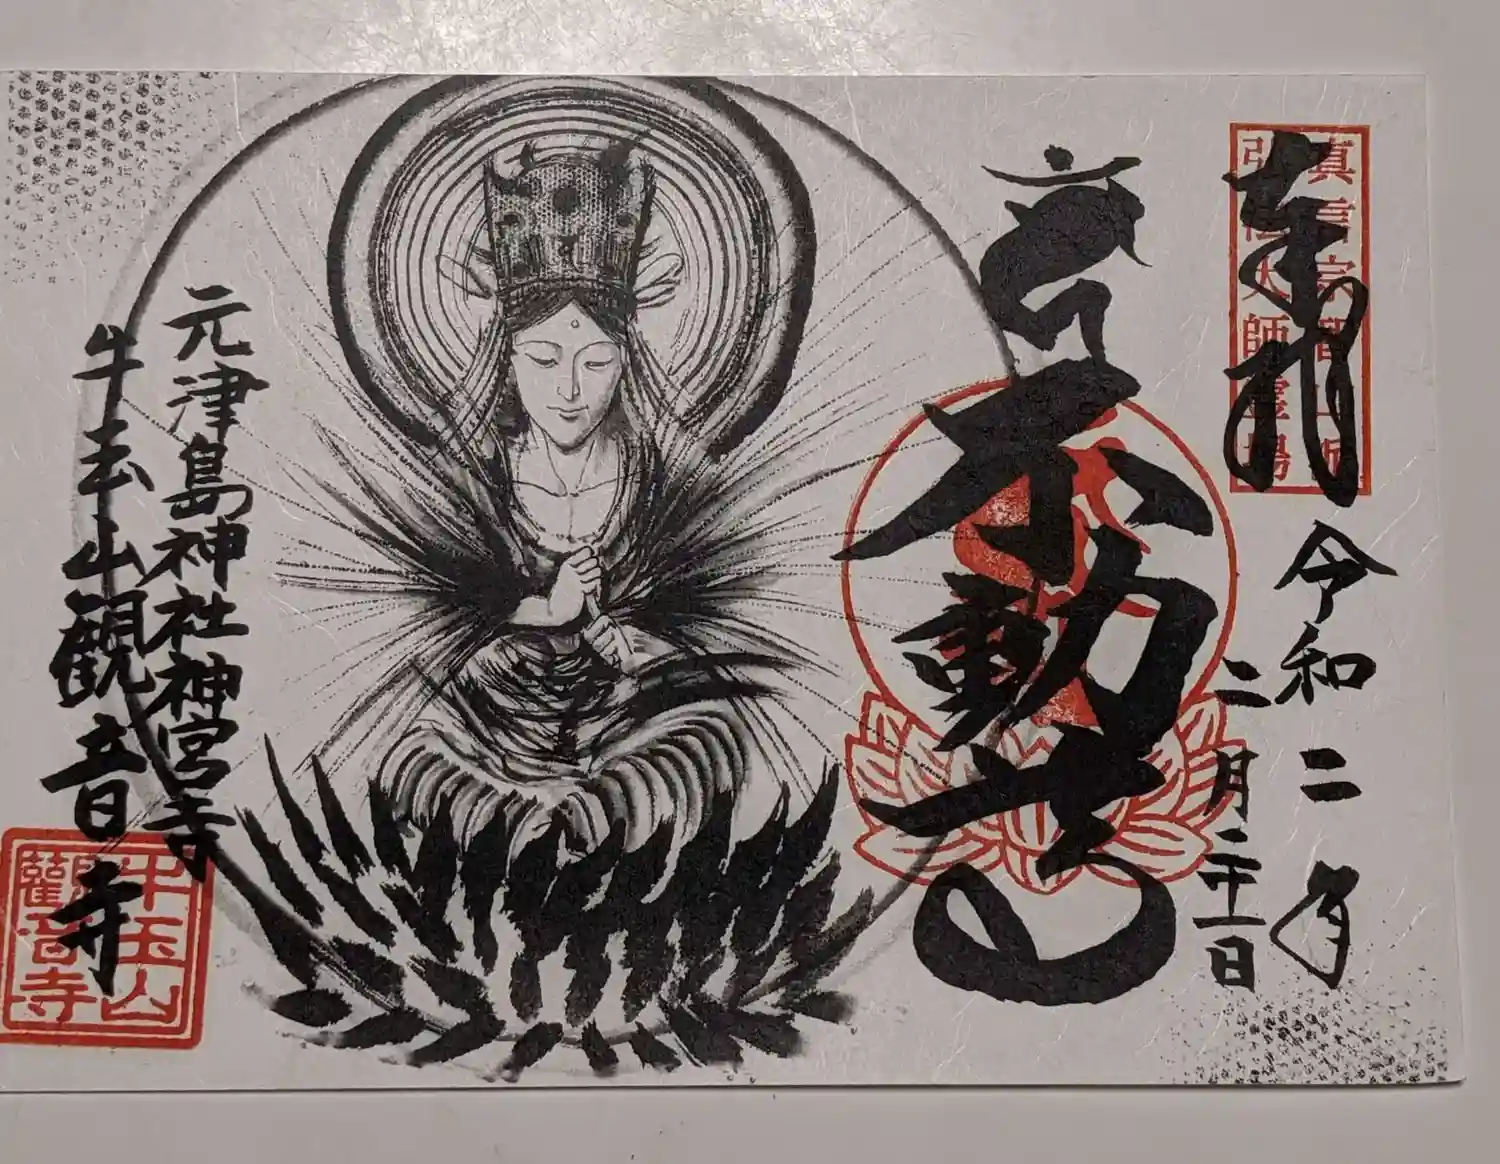 奉拝
真言宗智山派
弘法大師霊場
令和二年
二月二十一日
不動尊
元津島神社神宮寺
牛玉山観音寺
牛玉山
観音寺